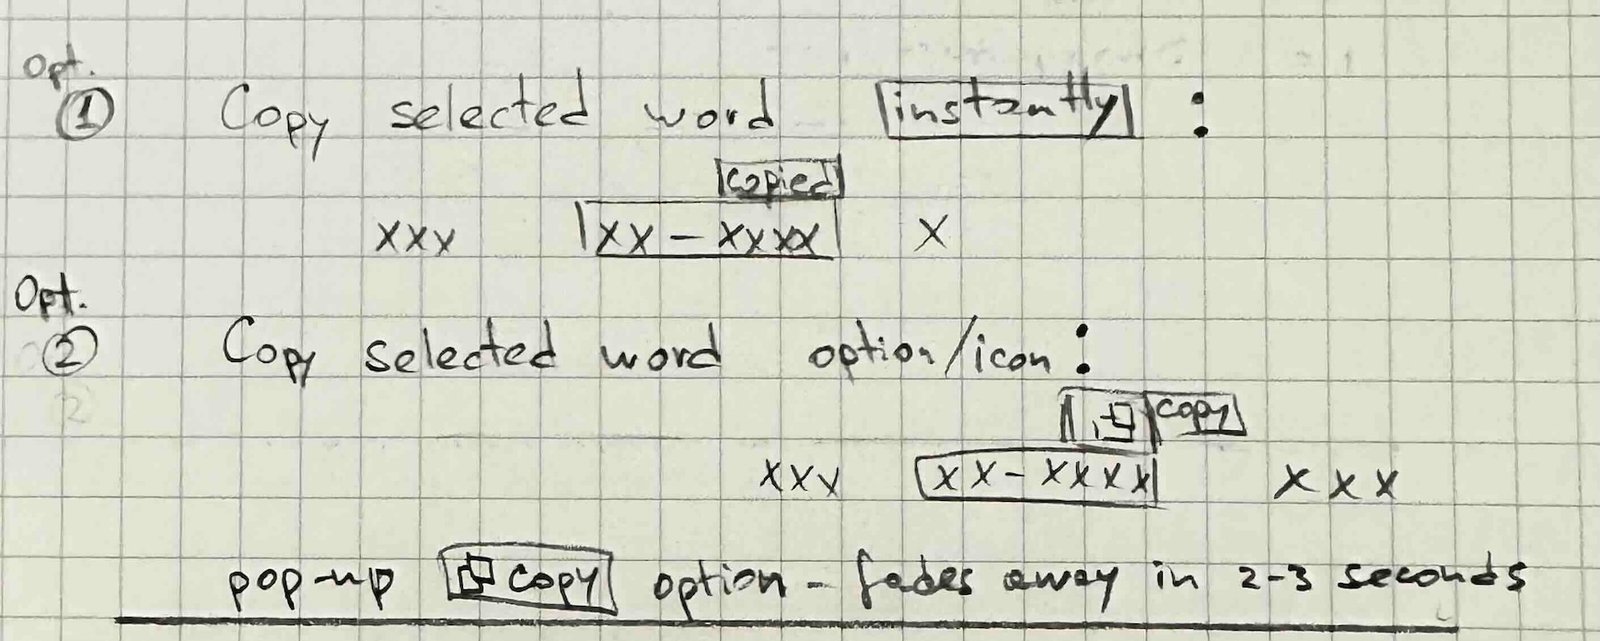 Opt.
① Copy selected word instantly :
copied
xxx xx-xxxx x
Opt.
② Copy selected word option/icon :
copy
xxx xx-xxxx xxx
pop-up copy option - fades away in 2-3 seconds